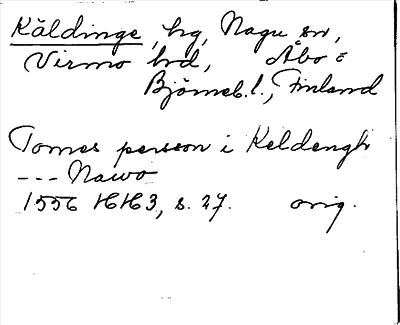 Käldinge, hg, Nagu sn,
Virmo hrd, Åbo o
Björneb. l., Finland
Tomes persson i Keldengh
--- Nawo
1556 HH3, s. 27. orig.